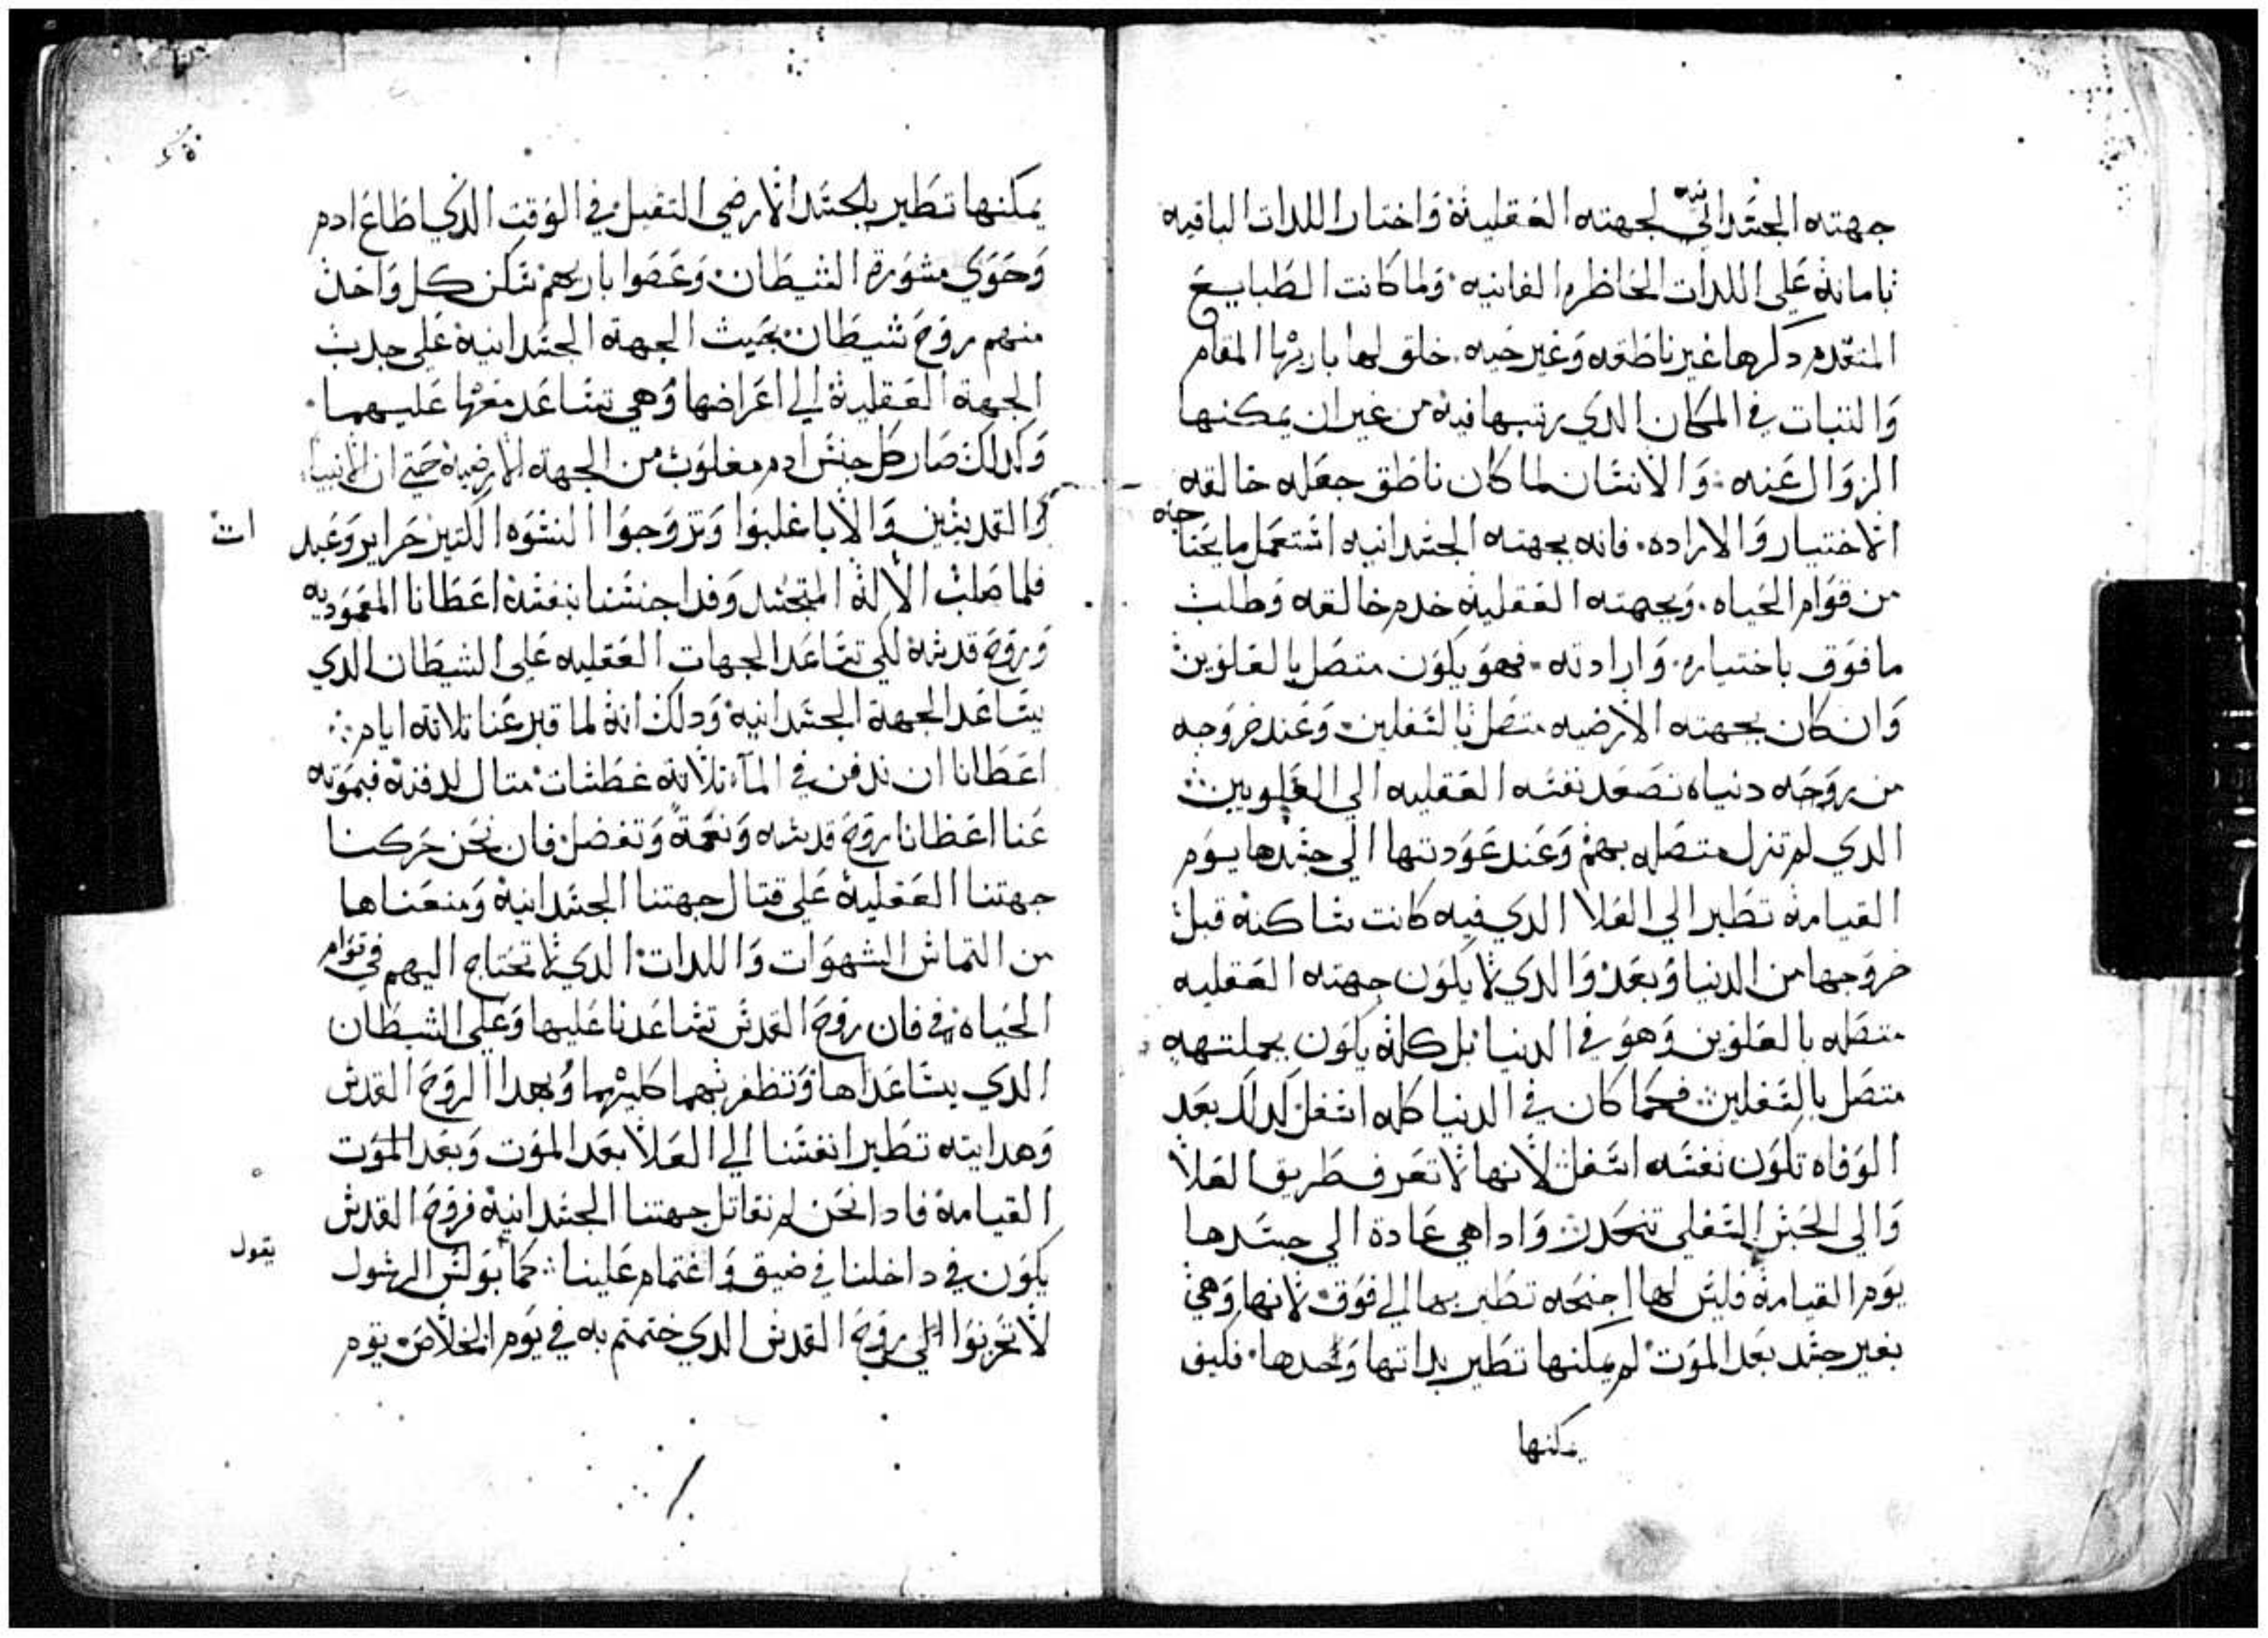 جهته الجسدانيه لجهته العقلية واختار اللدات الباقيه
بامانة على اللدات الحاظره الفانيه ولما كانت الطبايع
المتقدم دكرها غير ناطقه وغير حيه خلق لها باريها المقام
والثبات في المكان الدي رتبها فية من غير ان يمكنها
الزوال عنه والانسان لما كان ناطق جعله خالقه
الاختيار والاراده فانه بجهته الجسدانيه استعمل ما يحتاجه
من قوام الحياه وبجهته العقلية خدم خالقه وطلب
ما فوق باختياره وارادته فهو يكون متصل بالعلوين
وان كان بجهته الارضيه متصل بالسفلين وعند خروجه
من دنياه تصعد نفسه العقليه الي العلويين
الدي لم تزل متصله بهم وعند عودتها الي جسدها يوم
القيامة تطير الي العلا الدي فيه كانت ساكنة قبل
خروجها من الدنيا وبعد والدي لا يكون جهته العقليه
متصله بالعلوين وهو في الدنيا بل كلة يكون بجملتهه
متصل بالسفلين فكما كان في الدنيا كله اسفل كدلك بعد
الوفاه تكون نفسه اسفل لانها لا تعرف طريق العلا
والي الحبس السفلي تنحدر وادا هي عادة الي جسدها
يوم القيامة فليس لها اجنحه تطير بها الي فوق لانها وهي
بغير جسد بعد الموت لم يمكنها تطير بداتها وحدها فكيف
يمكنها
يمكنها تطير بالجسد الارضي التقيل في الوقت الدي اطاع ادم
وحوي مشورة الشيطان وعصوا باريهم سكن كل واحد
منهم روح شيطان بحيث الجهة الجسدانية على جدب
الجهة العقلية الي اعراضها وهي تساعد معها عليهما
وكدلك صار كل جنس ادم مغلوب من الجهة الارضية حتي ان الانبيا
والقديسين والابا غلبوا وتزوجوا النسوه الكتير حراير وعبد
ات
فلما صلب الالة المتجسد وفدا جنسنا بنفسة اعطانا المعموديه
وروح قدسة لكي تساعد الجهات العقليه على الشيطان الدي
يساعد الجهة الجسدانية ودلك انة لما قبر عنا تلاتة ايام
اعطانا ان ندفن في المآء تلاتة غطسات متال لدفنة فبموته
عنا اعطانا روح قدسه ونعمة وتفضل فان نحن حركنا
جهتنا العقلية على قتال جهتنا الجسدانية ومنعناها
من التماس الشهوات واللدات الدي لا تحتاج اليهم في قوام
الحياه فان روح القدس تساعدنا عليها وعلى الشيطان
الدي يساعداها وتظفر بهما كليهما وبهدا الروح القدس
وهدايته تطير انفسنا الي العلا بعد الموت وبعد الموت
القيامة فادا نحن لم نقاتل جهتنا الجسدانية فروح القدس
يكون في داخلنا في ضيق واغتمام علينا كما بولس الرسول
يقول
لا تحزنوا الي روح القدس الدي ختمتم به في يوم الخلاص يوم